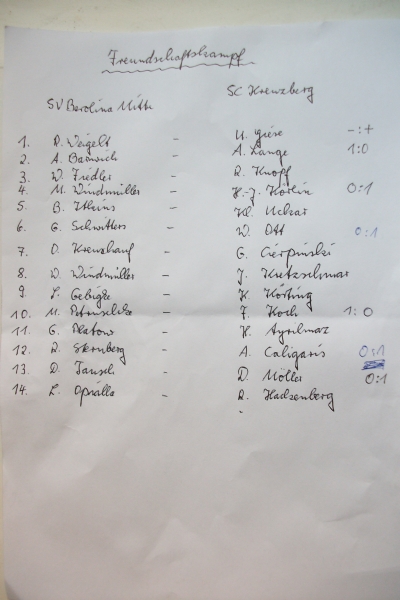 Freundschaftskampf
SV Berolina Mitte SC Kreuzberg
1. D. Weigelt - U. Giese -:+
2. A. - A. Lange 1:0
3. W. Fiedler - R. Knopf
4. M. Windmüller - H.-J. Körlin 0:1
5. B. - Kl. Uckar
6. G. Schwitters - W. Ott 0:1
7. D. Kreuzhauf - G. Cierpinski
8. D. Windmüller - J. Kretzschmar
9. L. Gebigke - K. Körting
10. M. - F. Koch 1:0
11. G. Platow - H. Ayrilmaz
12. R. Sternberg - A. Caligaris 0:1
13. D. Tausch - D. Möller 0:1
14. L. - R. Hadzenberg